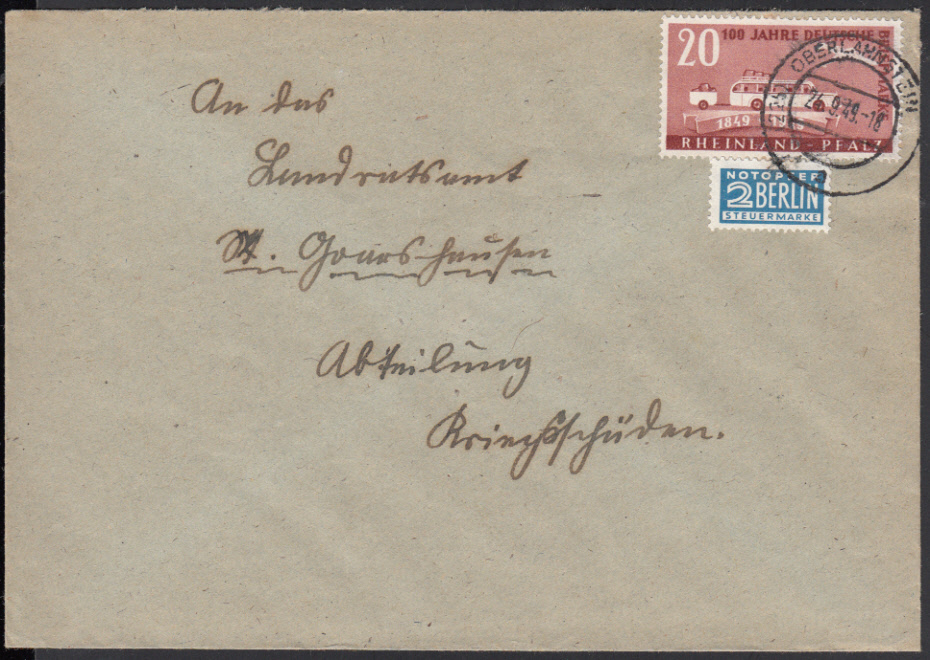 20 100 JAHRE DEUTSCHE BRIEFMARKE
1849 1949
RHEINLAND-PFALZ
OBERLAHNSTEIN
9.49.-18
NOTOPFER
2 BERLIN
STEUERMARKE
An das
Landratsamt
St. Goarshausen
Abteilung
Kriegsschäden.